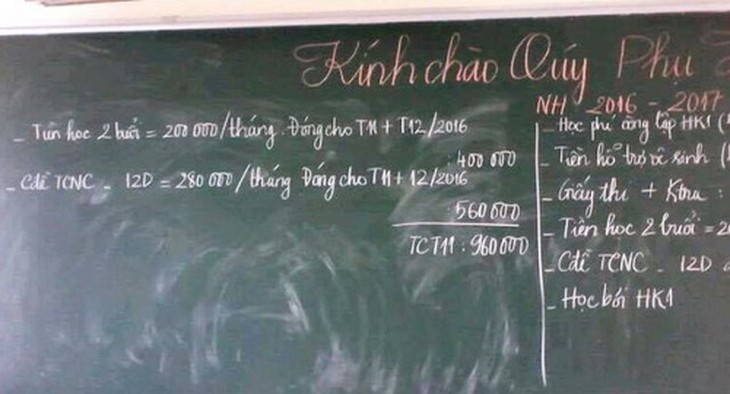 Kính chào Quý Phu
NH 2016 - 2017
- Tiền học 2 buổi = 200 000/tháng. Đóng cho T11 + T12/2016
: 400 000
- Cđề TCNC - 12D = 280 000/tháng Đóng cho T11 + 12/2016
: 560 000
TCT11 : 960 000
- Học phí công lập HK1 (
- Tiền hỗ trợ vệ sinh (
- Giấy thi + Ktra :
- Tiền học 2 buổi = 2
- Cđề TCNC - 12D
- Học bới HK1